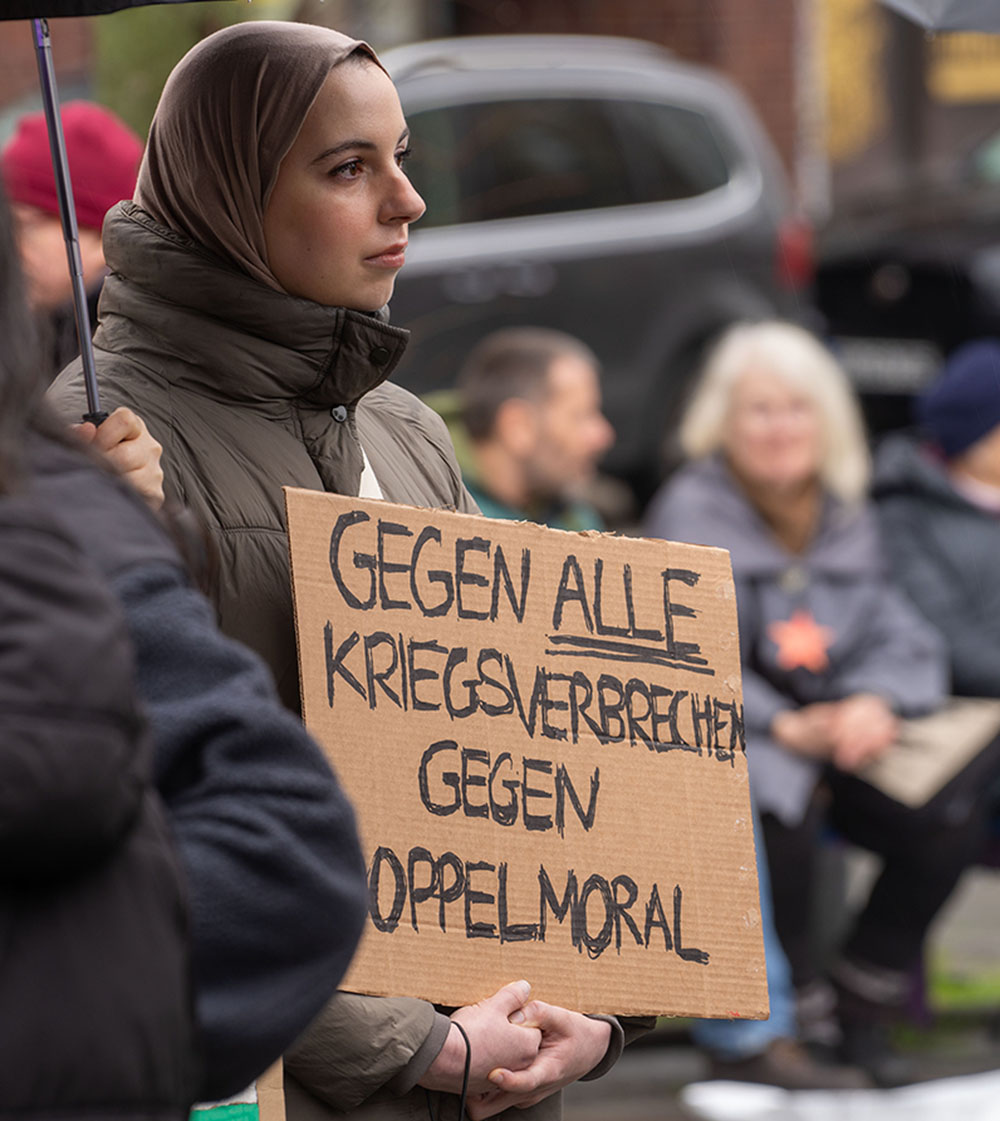 GEGEN ALLE
KRIEGSVERBRECHEN
GEGEN
OPPELMORAL